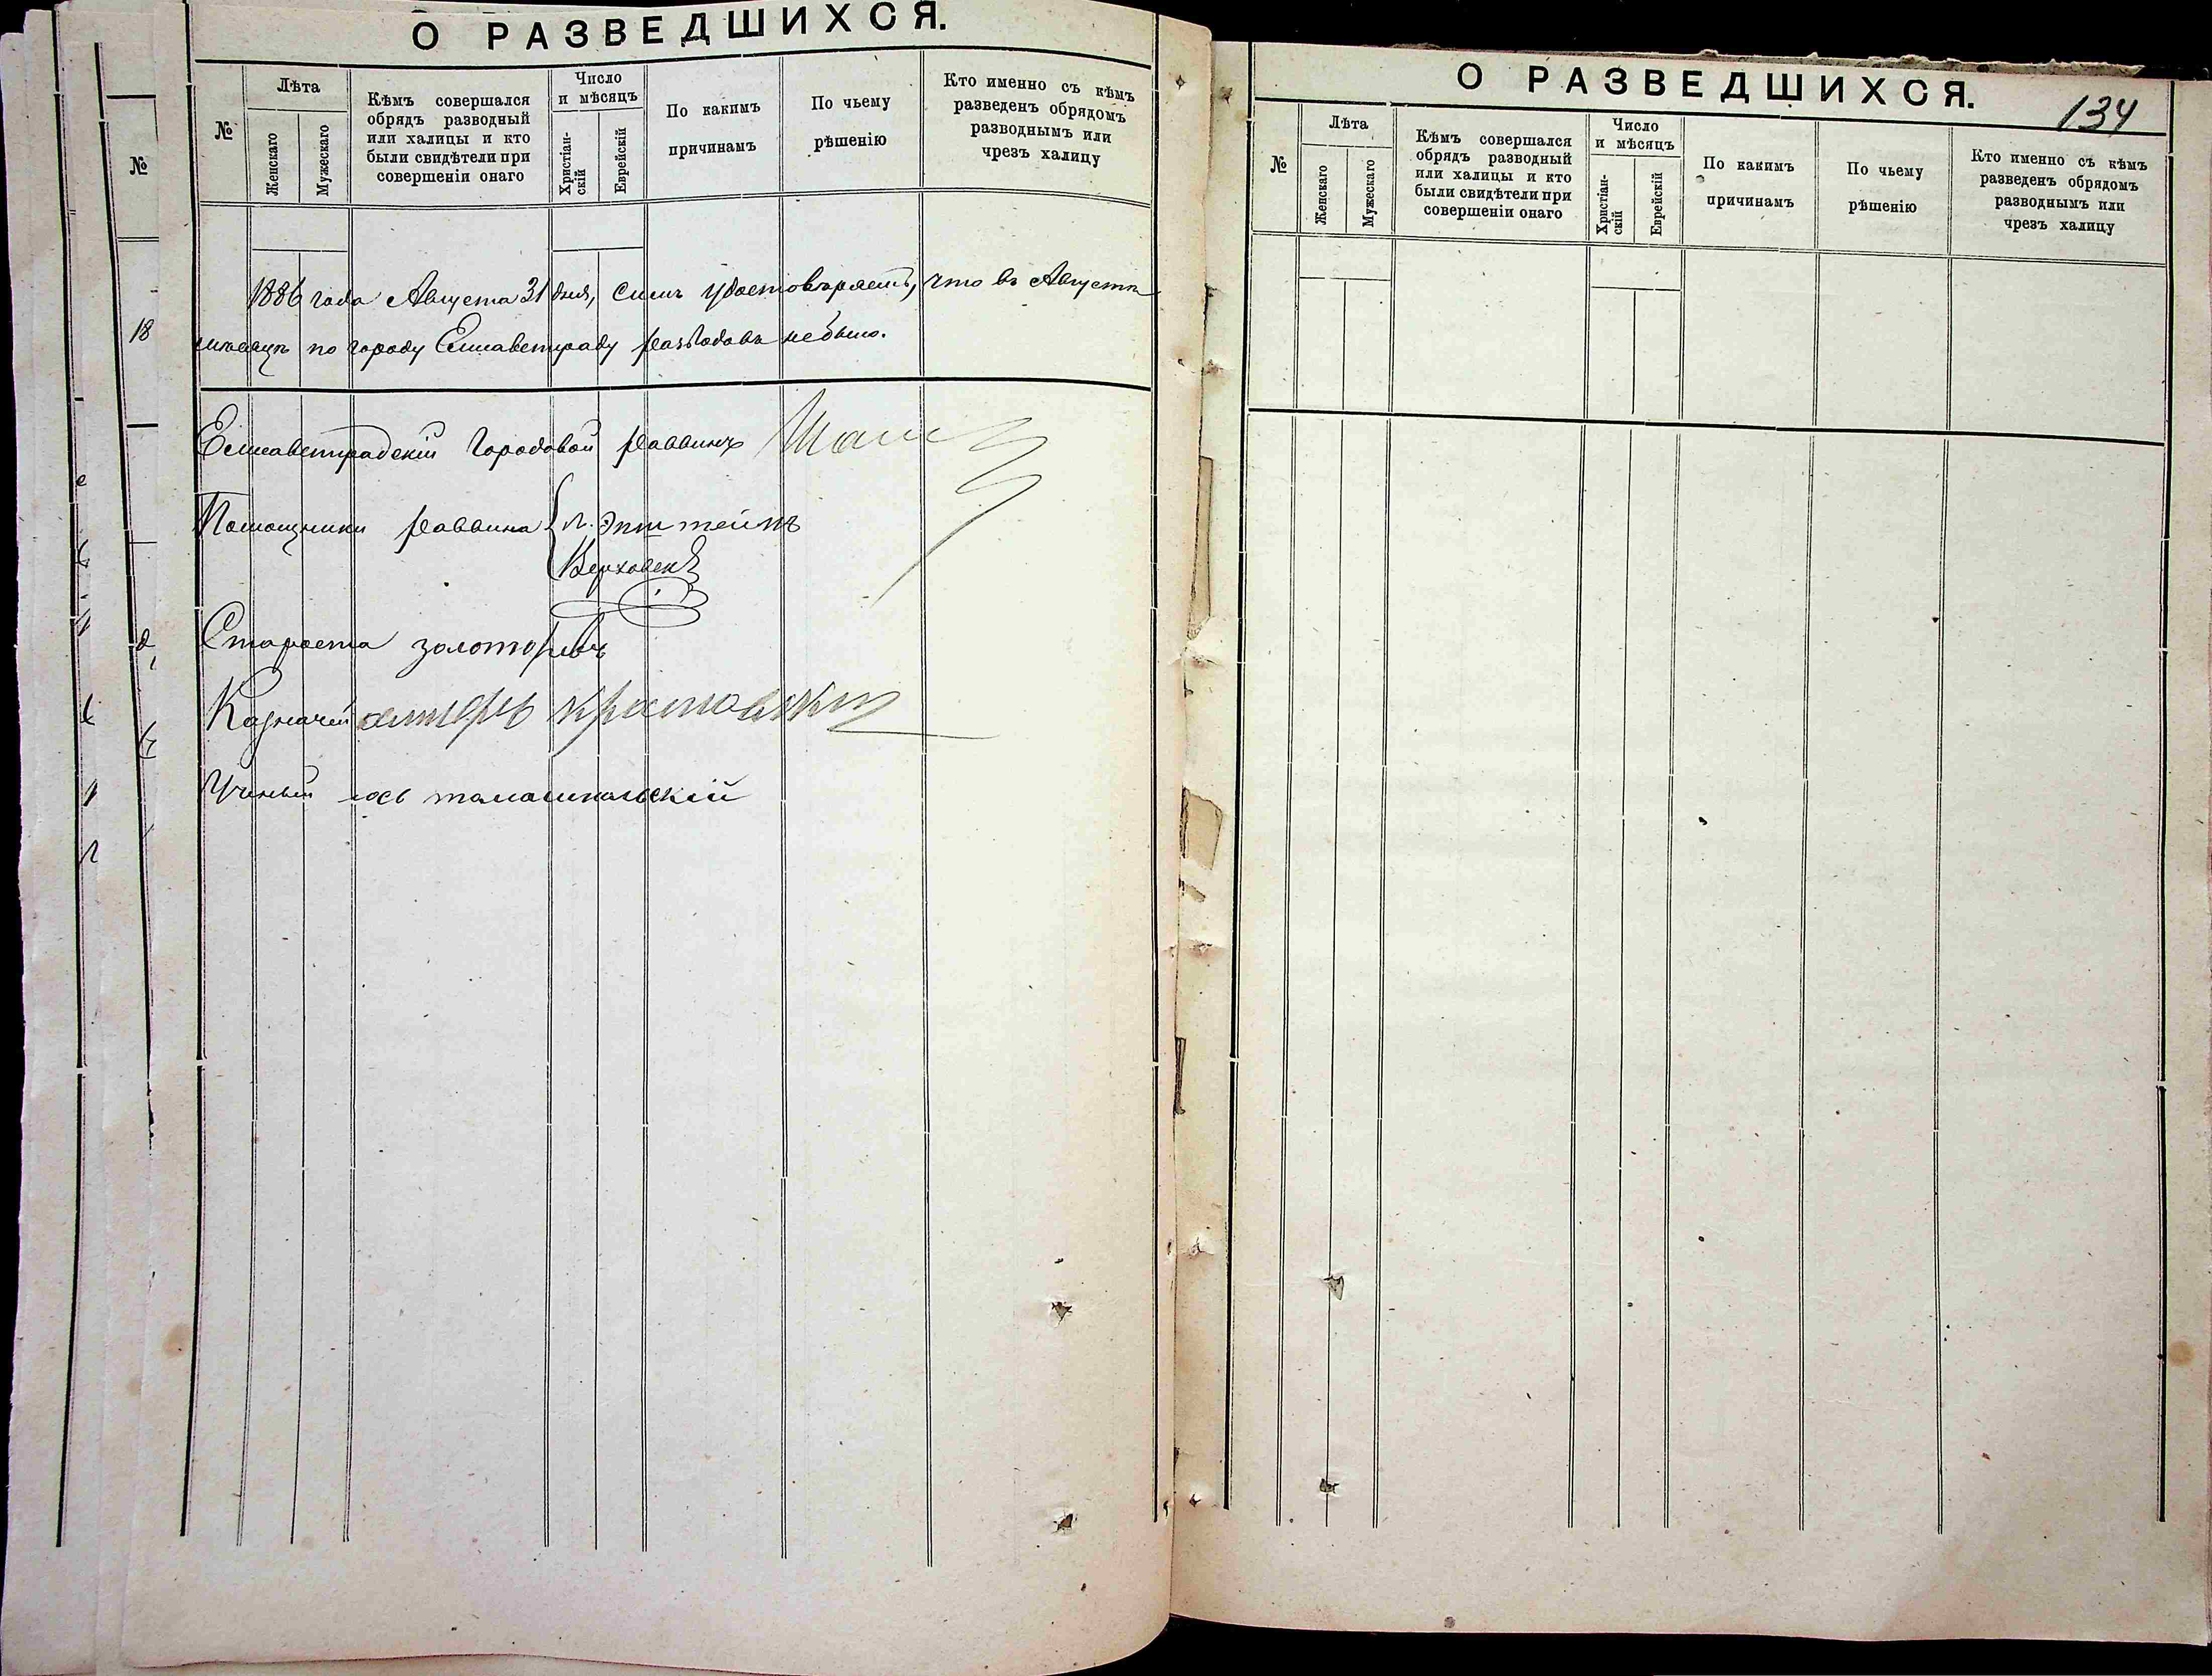 О РАЗВЕДШИХСЯ.
№
Лѣта
Женскаго
Мужескаго
Кѣмъ совершался
обрядъ разводный
или халицы и кто
были свидѣтели при
совершеніи онаго
Число
и мѣсяцъ
Христіан-
скій
Еврейскій
По какимъ
причинамъ
По чьему
рѣшенію
Кто именно съ кѣмъ
разведенъ обрядомъ
разводнымъ или
чрезъ халицу
1886 года Августа 31 дня, симъ удостовѣряемъ, что въ Августѣ
мѣсяцѣ по городу Елисаветграду разводовъ небыло.
Елисаветградскій Городовой раввинъ
Помощники раввина Л. Эпштейнъ
Староста золоторевъ
Казначей
Ученый
№
18
О РАЗВЕДШИХСЯ.
134
№
Лѣта
Женскаго
Мужескаго
Кѣмъ совершался
обрядъ разводный
или халицы и кто
были свидѣтели при
совершеніи онаго
Число
и мѣсяцъ
Христіан-
скій
Еврейскій
По какимъ
причинамъ
По чьему
рѣшенію
Кто именно съ кѣмъ
разведенъ обрядомъ
разводнымъ или
чрезъ халицу